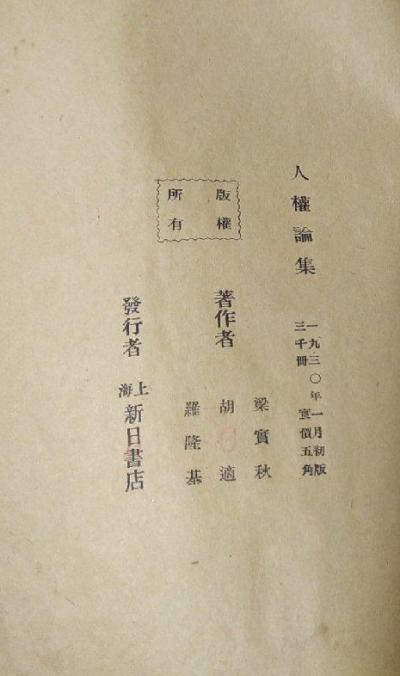 人權論集
一九三〇年一月初版
三千冊 實價五角
版權
所有
著作者
梁實秋
胡適
羅隆基
發行者
上海新日書店